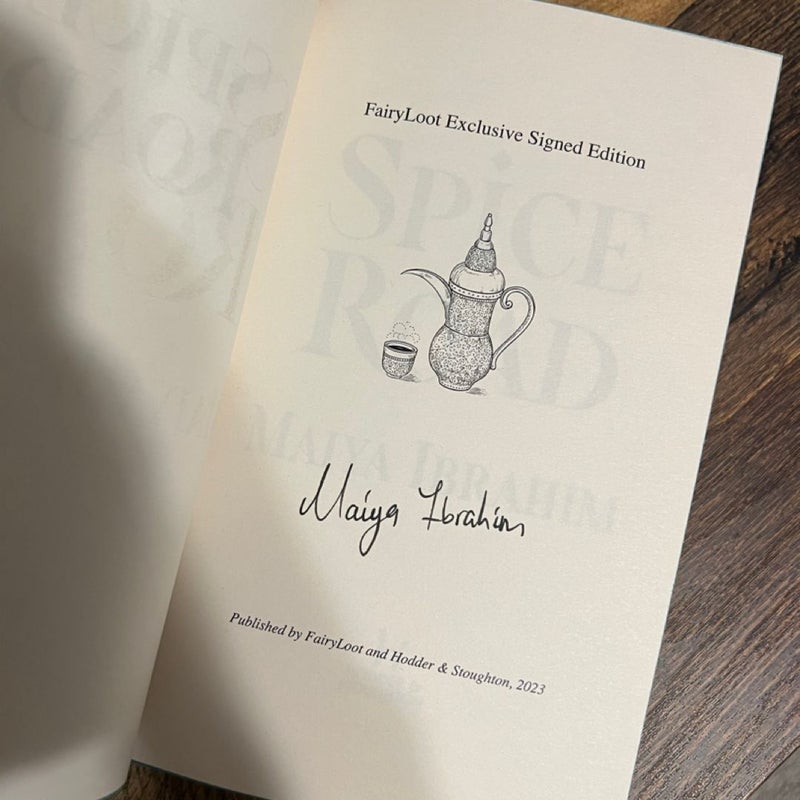 FairyLoot Exclusive Signed Edition
SPICE
ROAD
MAIYA IBRAHIM
Maiya Ibrahim
Published by FairyLoot and Hodder & Stoughton, 2023